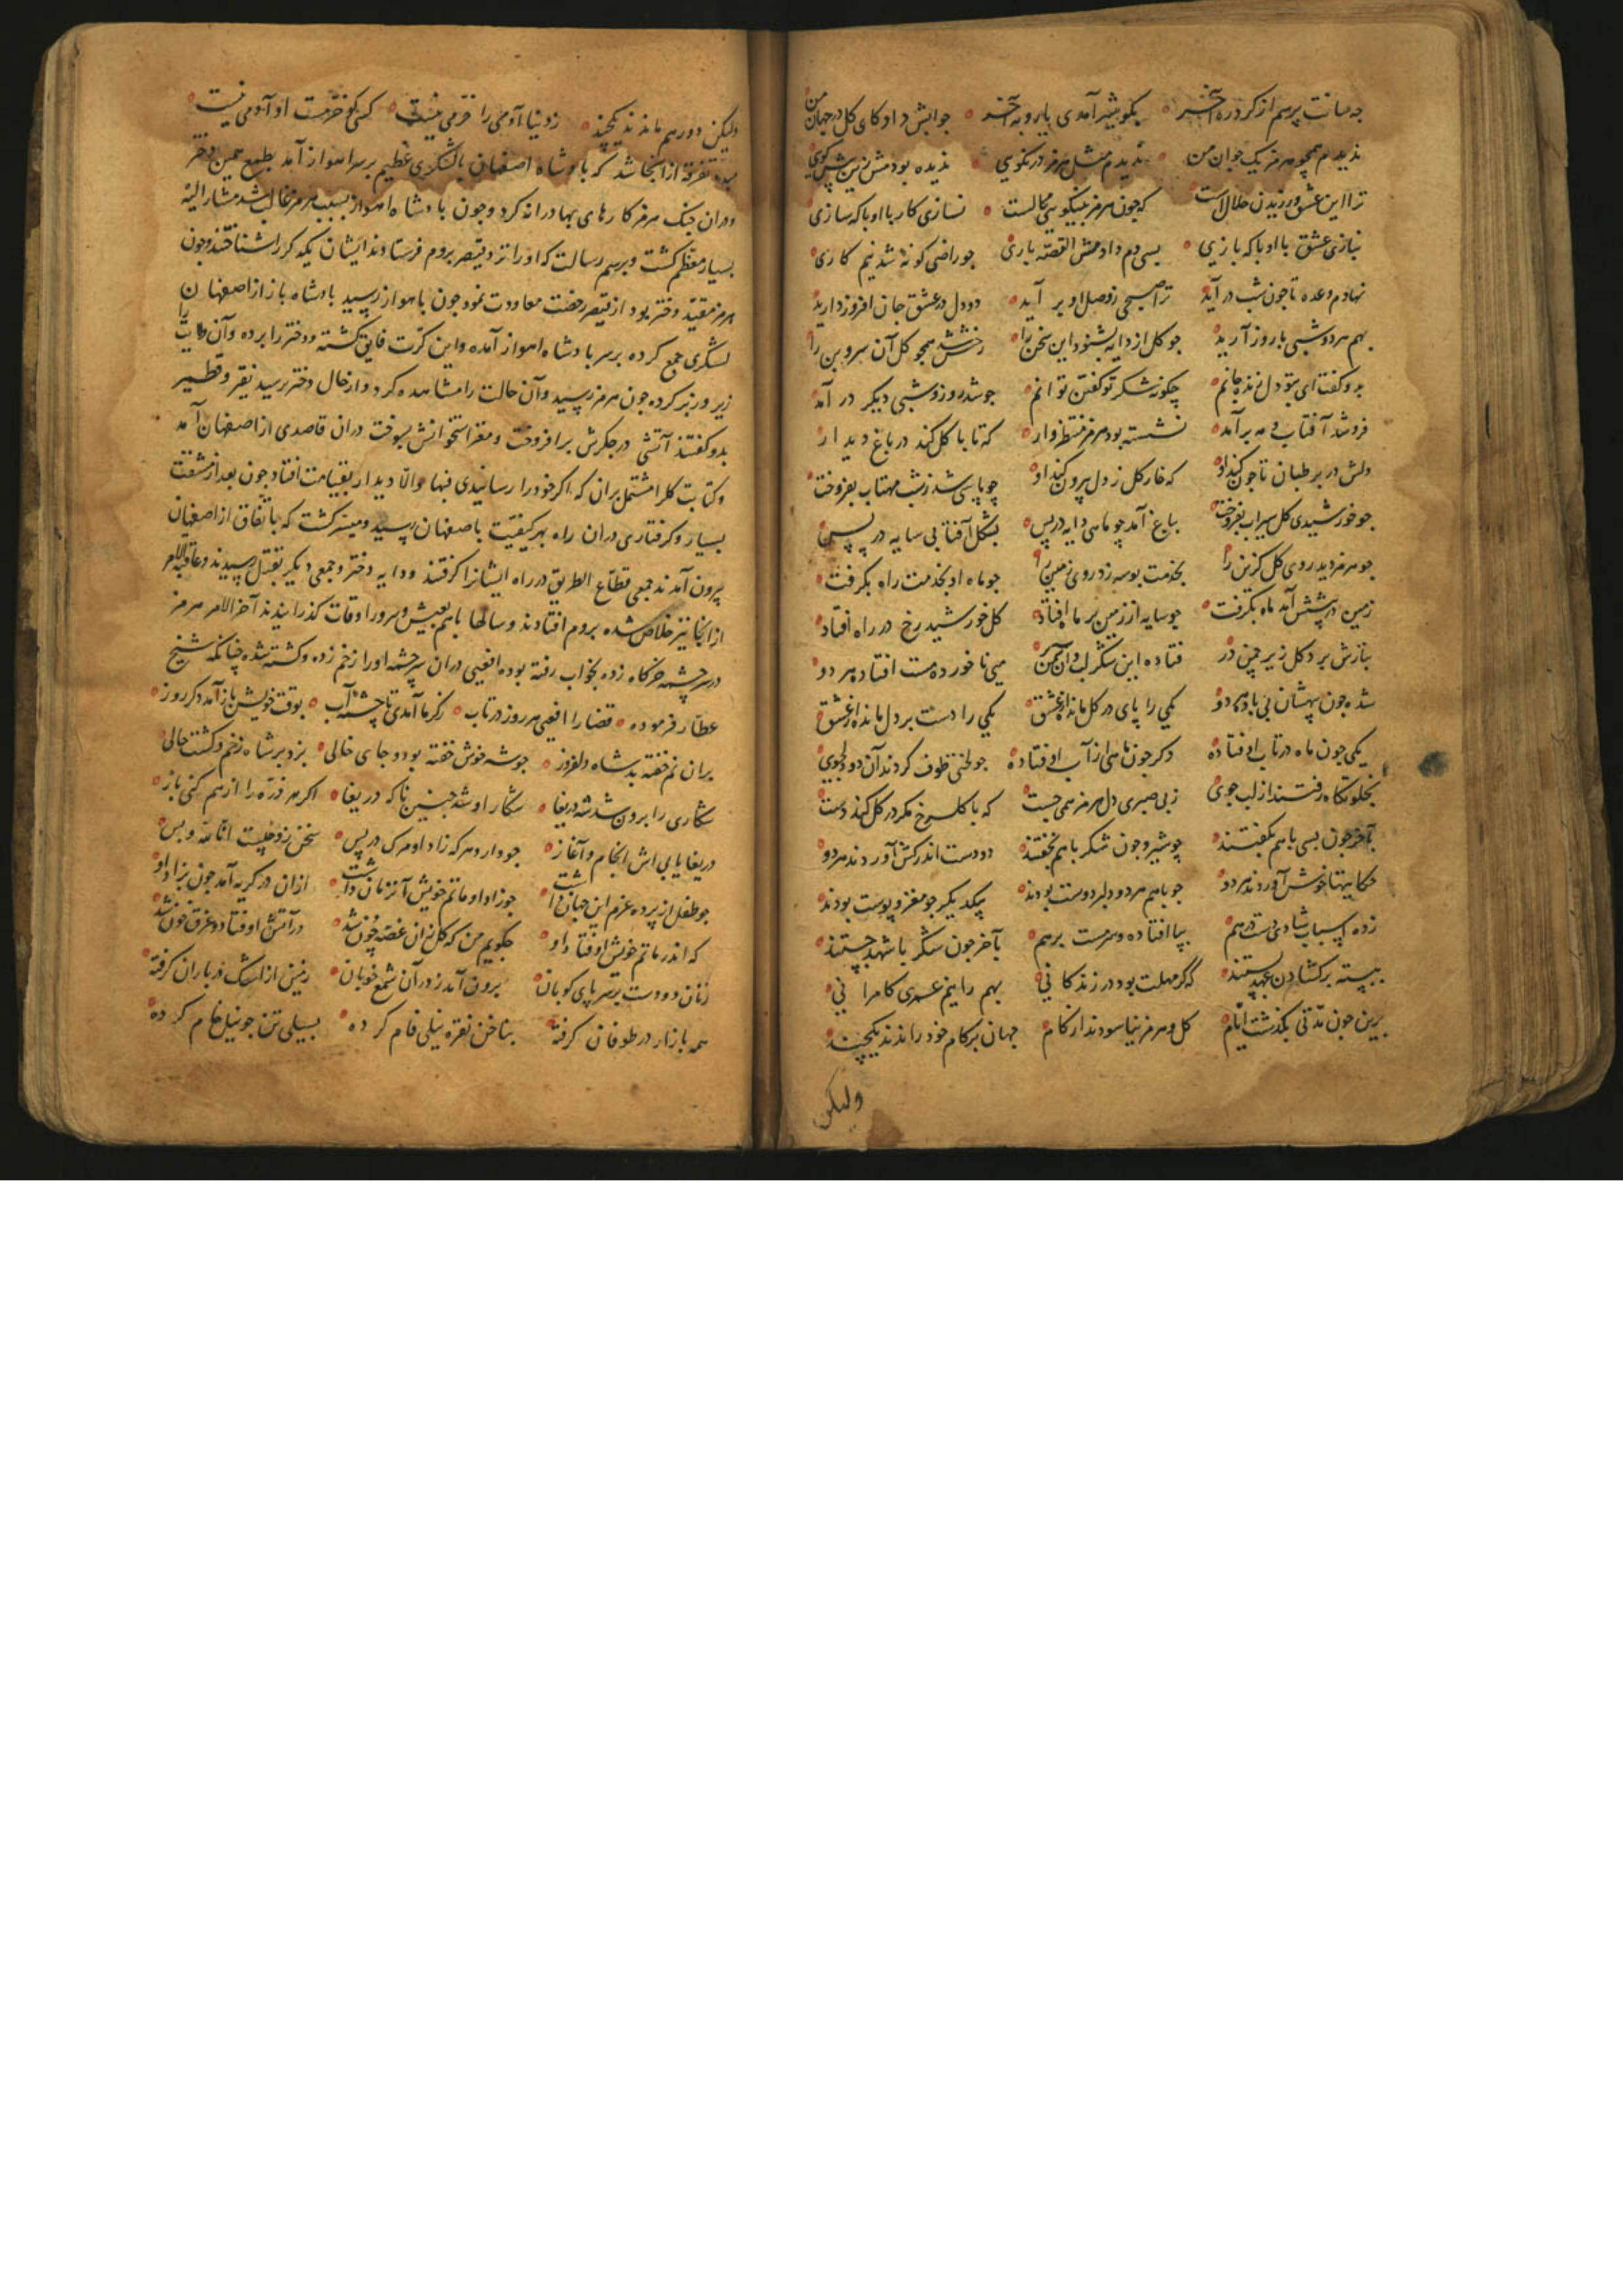 بگو بیشم آمدی یا رو به آخر جوابش داد کای کل در جهان من
ندیدم همچو هرمز یک جوان من ندیدم مثل هرمز در نکویی ندیده بود مش زین پیش کویی
ترا این عشق ورزیدن حلالست که چون هرمز بنیکویی کمالست نسازی کار با او با که سازی
نبازی عشق با او با که بازی بسی دم دادمش القصه باری جو راضی کونهٔ شد نیم کاری
نهادم وعده تا جون شب در آید ترا صبحی ز وصل او بر آید دو دل در عشق جان افروز دارید
بهم هر دو شبی با روز آرید جو کل از دایه بشنود این سخن را رخش شد همچو کل آن سرو بن را
بدو کفت ای بتو دل زنده جانم چکونه شکر تو کفتن توانم جو شد روز و شبی دیکر در آمد
فرو شد آفتاب و مه بر آمد نشسته بود هرمز منتظروار که تا با کل کند در باغ دیدار
دلش در بر طبان تا جون کند او که خار کل ز دل بیرون کند او چو پاسی شد ز شب مهتاب بفروخت
جو خورشیدی کل سیراب بفروخت بباغ آمد چو ماهی دایه در پس بشکل آفتابی سایه در پس
جو هرمز دید روی کلرخ را بخدمت بوسه زد روی زمین را جو ماه او بخدمت راه بکرفت
زمین در پیشش آمد ماه بکرفت جو سایه از زمین بر ماه افتاد کل خورشید رخ در راه افتاد
بنازش برد کل زیر چمن در فتاده این شکر لب وان سمن بر می ناخورده مست افتاد هر دو
شده جون بیهشان بی باده هر دو یکی را پای در کل مانده از عشق یکی را دست بر دل مانده از عشق
یکی جون ماه در تاب اوفتاده دکر جون ماهی از آب اوفتاده جو لختی طوف کردند آن دو دلجوی
بخلوتکاه رفتند از لب جوی ز بی صبری دل هرمز همی جست که با کلرخ مکر در کل کند دست
بآخر جون بسی با هم بکفتند چو شیر و جون شکر با هم بخفتند دو دست اندر کش آوردند هر دو
حکایتها خوش آوردند هر دو جو با هم هر دو دلبر دوست بودند بیکدیکر جو مغز و پوست بودند
زده اسباب شادی دست در هم بپا افتاده و سرمست بر هم بآخر جون شکر با شهد جستند
ببسته بر کشادن عهد بستند که کر مهلت بود در زندکانی بهم رانیم عمری کامرانی
برین جون مدتی بکذشت ایام کل و هرمز نیاسودند از کام جهان بر کام خود راندند یکچند
ولیکن
ولیکن دور هم ماندند یکچند ز دنیا آدمی را خرمی نیست کسی کو خرمست او آدمی نیست
تفرقه از انجا شد که پادشاه اصفهان با لشکری عظیم بر سر اهواز آمد بطمع همین دختر
و در ان جنک هرمز کارهای بهادرانه کرد و جون پادشاه اهواز بسبب هرمز غالب شد مشار الیه
بسیار معظم کشت و برسم رسالت که او را نزد قیصر بروم فرستادند ایشان یکدکر را شناختند و جون
هرمز مقید دختر بود از قیصر رخصت معاودت نمود جون باهواز رسید پادشاه باز از اصفهان
لشکری جمع کرده بر سر پادشاه اهواز آمده و این کرت فایق کشته و دختر را برده و آن ولایت را
زیر و زبر کرده جون هرمز رسید و آن حالت را مشاهده کرد و از حال دختر پرسید نقیر و قطمیر
بدو کفتند آتشی در جکرش برافروخت و مغز استخوانش بسوخت در ان قاصدی از اصفهان آمد
و کتابت کل را مشتمل بران که اکر خود را رسانیدی فبها و الا دیدار بقیامت افتاد جون بعد از مشقت
بسیار و کرفتاری در ان راه بهر کیفیت باصفهان رسید و میسر کشت که باتفاق از اصفهان
بیرون آمدند جمعی قطاع الطریق در راه ایشانرا کرفتند و دایه دختر و جمعی دیکر بقتل رسیدند و عاقبة الامر
از انجا نیز خلاص شده بروم افتادند و سالها با هم بعیش و سرور اوقات کذرانیدند آخر الامر هرمز
در سر چشمه خرکاه زده بخواب رفته بوده افعیی در ان سر چشمه او را زخم زده و کشته شده چنانکه شیخ
عطار فرموده قضا را افعیی هر روز در تاب ز کرما آمدی تا چشمه آب بوقت خویش باز آمد دکر روز
بران نم خفته بد شاه دلفروز جو شه خوش خفته بود و جای خالی بزد بر شاه زخم و کشت حالی
شکاری را برون شد شه دریغا شکار او شد چنین ناکه دریغا اکر هر ذره را از هم کنی باز
دریغا یابی اش انجام و آغاز جو دارد هر که زاد او مرک در پس سخن زو خلیست انا لله و بس
جو طفل از پرده عزم این جهان داشت جو زاد او ماتم خویش آنزمان داشت ازان در کریه آمد جون بزاد او
که اندر ماتم خویش اوفتاد او جکویم من که کل زان غصه چون شد در آتش اوفتاد و غرق خون شد
زنان دو دست بر سر پای کوبان برون آمد ز در آن شمع خوبان زمین از اشک در باران کرفته
همه بازار در طوفان کرفته بناخن نقره نیلی فام کرده بسیلی تن جو نیل خام کرده